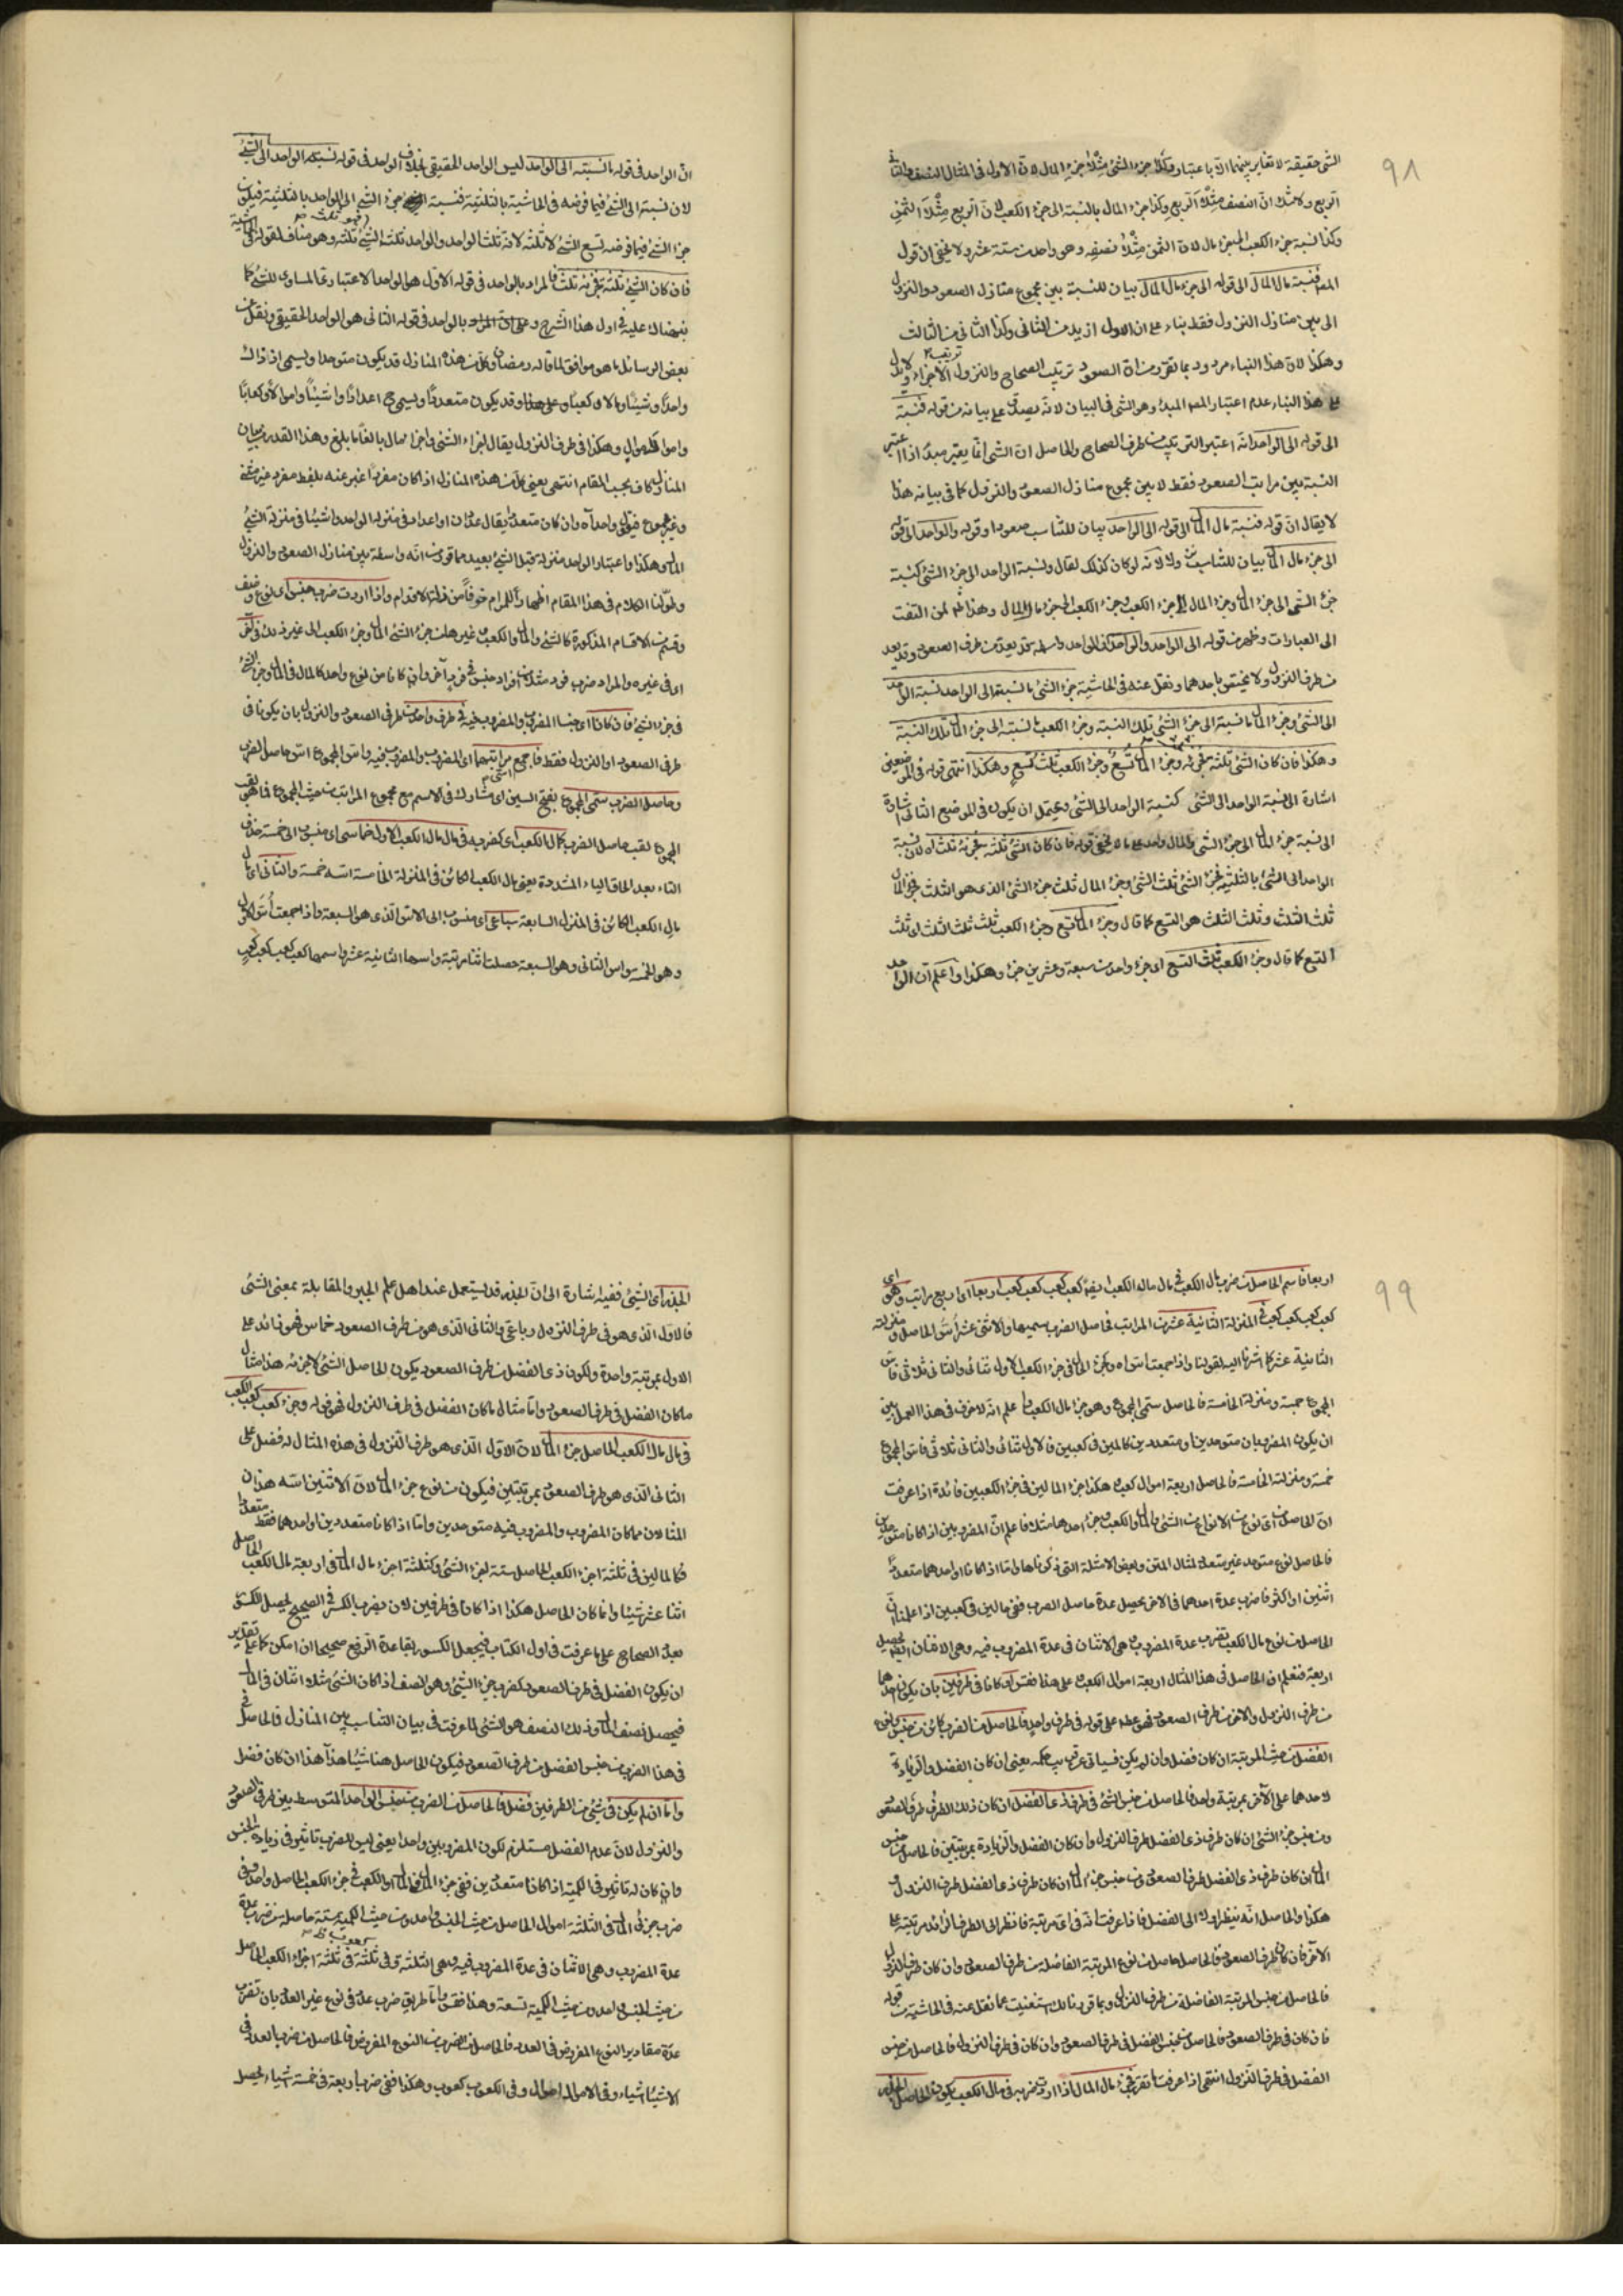 ٩٨
الشئ حقيقة لا تغاير بينهما الا باعتبار وكذا جزء الشئ مثلا جزء المال لان الاول فى المثال النصف والثانى
الربع ولا شك ان النصف مثلا الربع وكذا جزء المال بالنسبة الى جزء الكعب لان الربع مثلا الثمن
وكذا نسبة جزء الكعب الى جزء مال لان الثمن مثلا نصفه وهو واحد من ستة عشر ولا يخفى ان قول
المص فنسبة مال المال الى قوله الى جزء مال المال بيان للنسبة بين مجموع منازل الصعود والنزول
الى بين منازل النزول فقط بناء على ان الاول ازيد من الثانى وكذا الثانى من الثالث
وهكذا لان هذا البناء مردود بما تقرر من ان الصعود ترتيب الصحاح والنزول ترتيب الاجزاء ولا يدل
على هذا البناء عدم اعتبار المص المبدء وهو الشئ فى البيان لانه يصدق على بيانه من قوله فنسبة
الى قوله الى الواحد انه اعتبر التركيب من طرف الصحاح والحاصل ان الشئ انما يعتبر مبدء اذا اعتبر
النسبة بين مراتب الصعود فقط لا بين مجموع منازل الصعود والنزول كما فى بيانه هذا
لا يقال ان قوله فنسبة مال المال الى قوله الى الواحد بيان للتناسب صعودا وقوله والواحد الى قوله
الى جزء مال المال بيان للتناسب لانه لو كان كذلك لقال ونسبة الواحد الى جزء الشئ كنسبة
جزء الشئ الى جزء المال وجزء المال الى جزء الكعب وجزء الكعب الى جزء مال المال وهذا لمن التفت
الى العبارات وظهر من قوله الى الواحد والواحد ان الواحد واسطة قد يعد من طرف الصعود وقد يعد
من طرف النزول ولا يختص باحدهما ونقل عنه فى الحاشية جزء الشئ بالنسبة الى الواحد نسبة الواحد
الى الشئ وجزء المال بالنسبة الى جزء الشئ تلك النسبة وجزء الكعب بالنسبة الى جزء المال تلك النسبة
وهكذا فان كان الشئ ثلثة فجزئه وجزء المال تسع وجزء الكعب ثلث تسع وهكذا انتهى قوله فى الموضعين
اشارة الى نسبة الواحد الى الشئ كنسبة الواحد الى الشئ ويحتمل ان يكون فى الموضع الثانى اشارة
الى نسبة جزء المال الى جزء الشئ قوله فان كان الشئ ثلثة فجزئه ثلث اه لان نسبة
الواحد الى الشئ بالثلثية فجزء الشئ ثلث الشئ وجزء المال ثلث جزء الشئ الذى هو الثلث فجزء المال
ثلث الثلث وثلث الثلث هو التسع كما قال وجزء المال تسع وجزء الكعب ثلث ثلث الثلث اى ثلث
التسع كما قال وجزء الكعب ثلث التسع اى جزء واحد من سبعة وعشرين جزء وهكذا واعلم ان الواحد
ان الواحد فى قوله بالنسبة الى الواحد ليس الواحد الحقيقى بخلاف الواحد فى قوله نسبة الواحد الى الشئ
لان نسبة الى الشئ فيما فرضه فى الحاشية بالثلثية فنسبة جزء الشئ الى الواحد بالثلثية فيكون
جزء الشئ فيما فرضه تسع الشئ لا ثلثه لانه ثلث الواحد والواحد ثلث الشئ وهو مناف لقوله
فان كان الشئ ثلثة فجزئه ثلث فالمراد بالواحد فى قوله الاول هو الواحد الاعتبارى المساوى للشئ كما
نبهناك عليه فى اول هذا الشرح وبالواحد فى قوله الثانى هو الواحد الحقيقى ونقل عن
بعض الرسائل ما هو موافق لما قاله ومضاف كل من هذه المنازل قد يكون متوحدا ويسمى اذ ذاك
واحدا وشيئا ومالا وكعبا وعلى هذا وقد يكون متعددا ويسمى ح اعدادا واشيئا واموالا وكعابا
واموال مال وهكذا فى طرف النزول يقال اجزاء الشئ واجزاء مال بالغا ما بلغ وهذا القدر من بيان
المنازل كاف بحسب المقام انتهى يعنى كل من هذه المنازل اذا كان مفردا عبر عنه بلفظ مفرد غير مثنى
وغير مجموع فيقال واحد اه وان كان متعددا يقال عددان او اعداد فى منزلة الواحد واشيئا فى منزلة الشئ
الى وهكذا واعتبار الواحد منزلة قبل الشئ بعيد مما قرر من انه واسطة بين منازل الصعود والنزول
وطولنا الكلام فى هذا المقام اظهارا للمرام خوفا من زلة الاقدام واذا اردت ضرب جنس اى نوع وصنف
وقسم من الاقسام المذكورة كالشئ والمال والكعب وغيرها من جزء الشئ وجزء المال وجزء الكعب الى غير ذلك فى آخر
اى فى غيره والمراد ضرب فرد من افراد جنس فى فرد آخر وان كانا من نوع واحد كالمال فى المال وجزء الشئ
فى جزء الشئ فان كانا اى جنسا المضروب والمضروب فيه فى طرف واحد من طرفى الصعود والنزول بان يكونا فى
طرف الصعود او النزول فقط فاجمع مراتبهما اى المضروب والمضروب فيه واس المجموع اس حاصل الضرب
وحاصل الضرب سمى المجموع بفتح السين اى مشارك فى الاسم مع مجموع المراتب من حيث المجموع فما هو لقب
المجموع لقب حاصل الضرب كمال الكعب اى كضربه فى مال مال الكعب الاول خماسى اى منسوب الى خمسة حذف
التاء بعد الحاق الياء المشددة يعنى مال الكعب الكائن فى المنزلة الخامسة اسه خمسة والثانى اى مال
مال الكعب الكائن فى المنزلة السابعة سباعى اى منسوب الى الاس الذى هو السبعة واذا جمعت اس الاول
وهو الخمسة واس الثانى وهو السبعة حصلت اثنا مرتبة واسمها الثانية عشر واسمها كعب كعب كعب كعب
٩٩
اربعا فاسم الحاصل من ضرب مال الكعب فى مال مال الكعب ايضا كعب كعب كعب كعب اربعا اى اربع مراتب وهو اى
كعب كعب كعب كعب فى المنزلة الثانية عشر من المراتب فحاصل الضرب سميها والاثنى عشر اس الحاصل ومنزلته
الثانية عشر كما اشرنا اليه بقولنا واذا جمعت اس اه وكجزء المال فى جزء الكعب الاول ثنائى والثانى ثلاثى فاس
المجموع خمسة ومنزلة الخامسة فالحاصل سمى المجموع وهو جزء مال الكعب واعلم انه لا فرق فى هذا العمل بين
ان يكون المضروبان متوحدين او متعددين كمالين فى كعبين فالاول ثنائى والثانى ثلاثى فاس المجموع
خمسة ومنزلته الخامسة فالحاصل اربعة اموال كعب هكذا جزء المالين فى جزء الكعبين فائدة اذا عرفت
ان الحاصل من اى نوع من الانواع من الشئ والمال والكعب وجزء احدها مثلا فاعلم ان المضروبين اذا كانا متوحدين
فالحاصل نوع متوحد غير متعدد كمثال المتن وبعض الامثلة التى ذكرناها واما اذا كانا او احدهما متعددا
اثنين او اكثر فاضرب عدة احدهما فى الاخر يحصل عدة حاصل الضرب ففى مالين فى كعبين اذا علمنا ان
الحاصل من نوع مال الكعب تضرب عدة المضروب وهى الاثنان فى عدة المضروب فيه وهى الاثنان ايضا يحصل
اربعة فنعلم ان الحاصل فى هذا المثال اربعة اموال الكعب وعلى هذا فقس او كانا فى طرفين بان يكون احدهما
من طرف النزول والاخر من طرف الصعود فهو عطف على قوله فى طرف واحد فالحاصل من الضرب كائن من جنس ونوع
الفضل من حيث المرتبة ان كان فضل وان لم يكن فسيأتى عن قريب حكمه يعنى ان كان الفضل والزيادة
لاحدهما على الآخر بمرتبة واحدة فالحاصل من جنس الشئ فى طرف ذى الفضل ان كان ذلك الطرف طرف الصعود
ومن جنس جزء الشئ ان كان طرف ذى الفضل طرف النزول وان كان الفضل والزيادة بمرتبتين فالحاصل من جنس
المال ان كان طرف ذى الفضل طرف الصعود ومن جنس جزء المال ان كان طرف ذى الفضل طرف النزول و
هكذا والحاصل انه ينظر اولا الى الفضل فاذا عرفت انه فى اى مرتبة فانظر الى الطرف الزائد مرتبته على
الآخر فان كان طرف الصعود فالحاصل حاصل من نوع المرتبة الفاضلة من طرف الصعود وان كان طرف النزول
فالحاصل من جنس المرتبة الفاضلة من طرف النزول وبما قررنا لك استغنيت عما نقل عنه فى الحاشية من قوله
فان كان فى طرف الصعود فالحاصل من جنس الفضل فى طرف الصعود وان كان فى طرف النزول فالحاصل من جنس
الفضل فى طرف النزول انتهى اذا عرفت ما تقرر فجزء مال المال اذا اردت ضربه فى مال الكعب يكون الحاصل الجذر
الجذر اى الشئ ففيه اشارة الى ان الجذر قد يستعمل عند اهل علم الجبر والمقابلة بمعنى الشئ
فالاول الذى هو فى طرف النزول رباعى والثانى الذى هو من طرف الصعود خماسى فهو زائد على
الاول بمرتبة واحدة ولكون ذى الفضل من طرف الصعود يكون الحاصل الشئ لا جزئه هذا مثال
ما كان الفضل فى طرف الصعود واما مثال ما كان الفضل فى طرف النزول فهو قوله وجزء كعب كعب الكعب
فى مال مال الكعب الحاصل جزء المال لان الاول الذى هو طرف النزول فى هذه المثال له فضل على
الثانى الذى هو طرف الصعود بمرتبتين فيكون من نوع جزء المال لان الاثنين اسه هذان
المثالان مما كان المضروب والمضروب فيه متوحدين واما اذا كانا متعددين او احدهما فقط متعددا
فكالمالين فى ثلثة اجزاء الكعب الحاصل ستة اجزاء الشئ وكثلثة اجزاء مال المال فى اربعة مال الكعب الحاصل
اثنا عشر شيئا وانما كان الحاصل هكذا اذا كانا فى طرفين لان بضرب الكسر فى الصحيح يحصل الكسر
بعدة الصحاح على ما عرفت فى اول الكتاب فيجعل الكسور بقاعدة الرفع صحيحا ان امكن كما على تقدير
ان يكون الفضل فى طرف الصعود كضرب جزء الشئ وهو النصف اذا كان الشئ مثلا اثنان فى المال
فيحصل نصف المال وذلك النصف هو الشئ لما عرفت فى بيان التناسب بين المنازل فالحاصل
فى هذا الضرب من جنس الفضل من طرف الصعود فيكون الحاصل هنا شيئا هذا هذا ان كان فضل
واما ان لم يكن فى شئ من الطرفين فضل فالحاصل من الضرب من جنس الواحد المتوسط بين طرفى الصعود
والنزول لان عدم الفضل مستلزم لكون المضروبين واحدا يعنى ليس للضرب تاثير فى زيادة الجنس
وان كان له تاثير فى الكمية اذا كانا متعددين ففى جزء المال فى المال او الكعب فى جزء الكعب الحاصل واحد وفى
ضرب جزئى المال فى الثلثة اموال الحاصل من حيث الجنس واحد ومن حيث الكمية ستة حاصلة من ضرب عدة
عدة المضروب وهى الاثنان فى عدة المضروب فيه وهى الثلثة وفى ثلثة فى ثلثة اجزاء الكعب الحاصل
من حيث الجنس واحد ومن حيث الكمية تسعة وهذا فقس واما طريق ضرب عدد فى نوع غير العدد بان تضرب
عدة مقادير النوع المفروض فى العدد فالحاصل من الضرب من النوع المفروض فالحاصل من ضرب العدد فى
الاشيئا اشياء وفى الاموال اموال وفى الكعوب كعوب وهكذا ففى ضرب اربعة فى خمسة اشياء يحصل